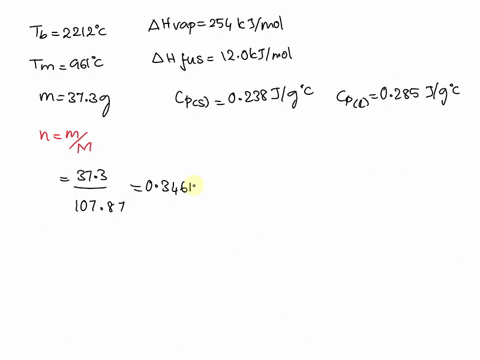 Tb=2212°C ΔHvap=254 kJ/mol
Tm=961°C ΔHfus=12.0kJ/mol
m=37.3g Cp(s)=0.238 J/g°C Cp(l)=0.285 J/g°C
n=m/M
= 37.3/107.87 =0.3461